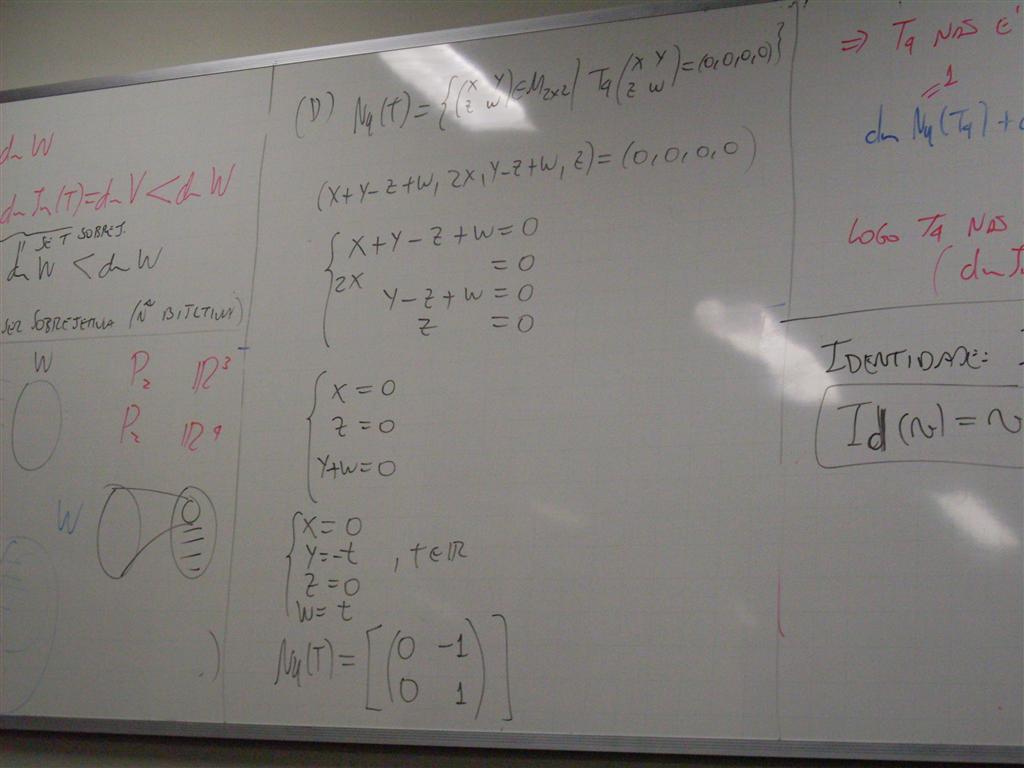 dn W
dn Im(T)=dn V < dn W
|| SE T SOBREJ.
dn W < dn W
SER SOBREJETIVA (Ñ BIJETIVA)
W P₂ ℝ³
P₂ ℝ⁴
W
)
(D) Nq(T) = {(X Y
Z W) ∈ M₂ₓ₂ | T₄(X Y
Z W) = (0,0,0,0)}
(X+Y-Z+W, 2X, Y-Z+W, Z) = (0,0,0,0)
{ X+Y-Z+W=0
2X =0
Y-Z+W=0
Z =0
{ X=0
Z=0
Y+W=0
{ X=0
Y=-t , t∈ℝ
Z=0
W=t
Nq(T)= [(0 -1
0 1)]
⇒ T₄ NAS E'
1
dn Nq(T₄)+
LOGO T₄ NAS
(dn I
IDENTIDADE:
Id(v)=v